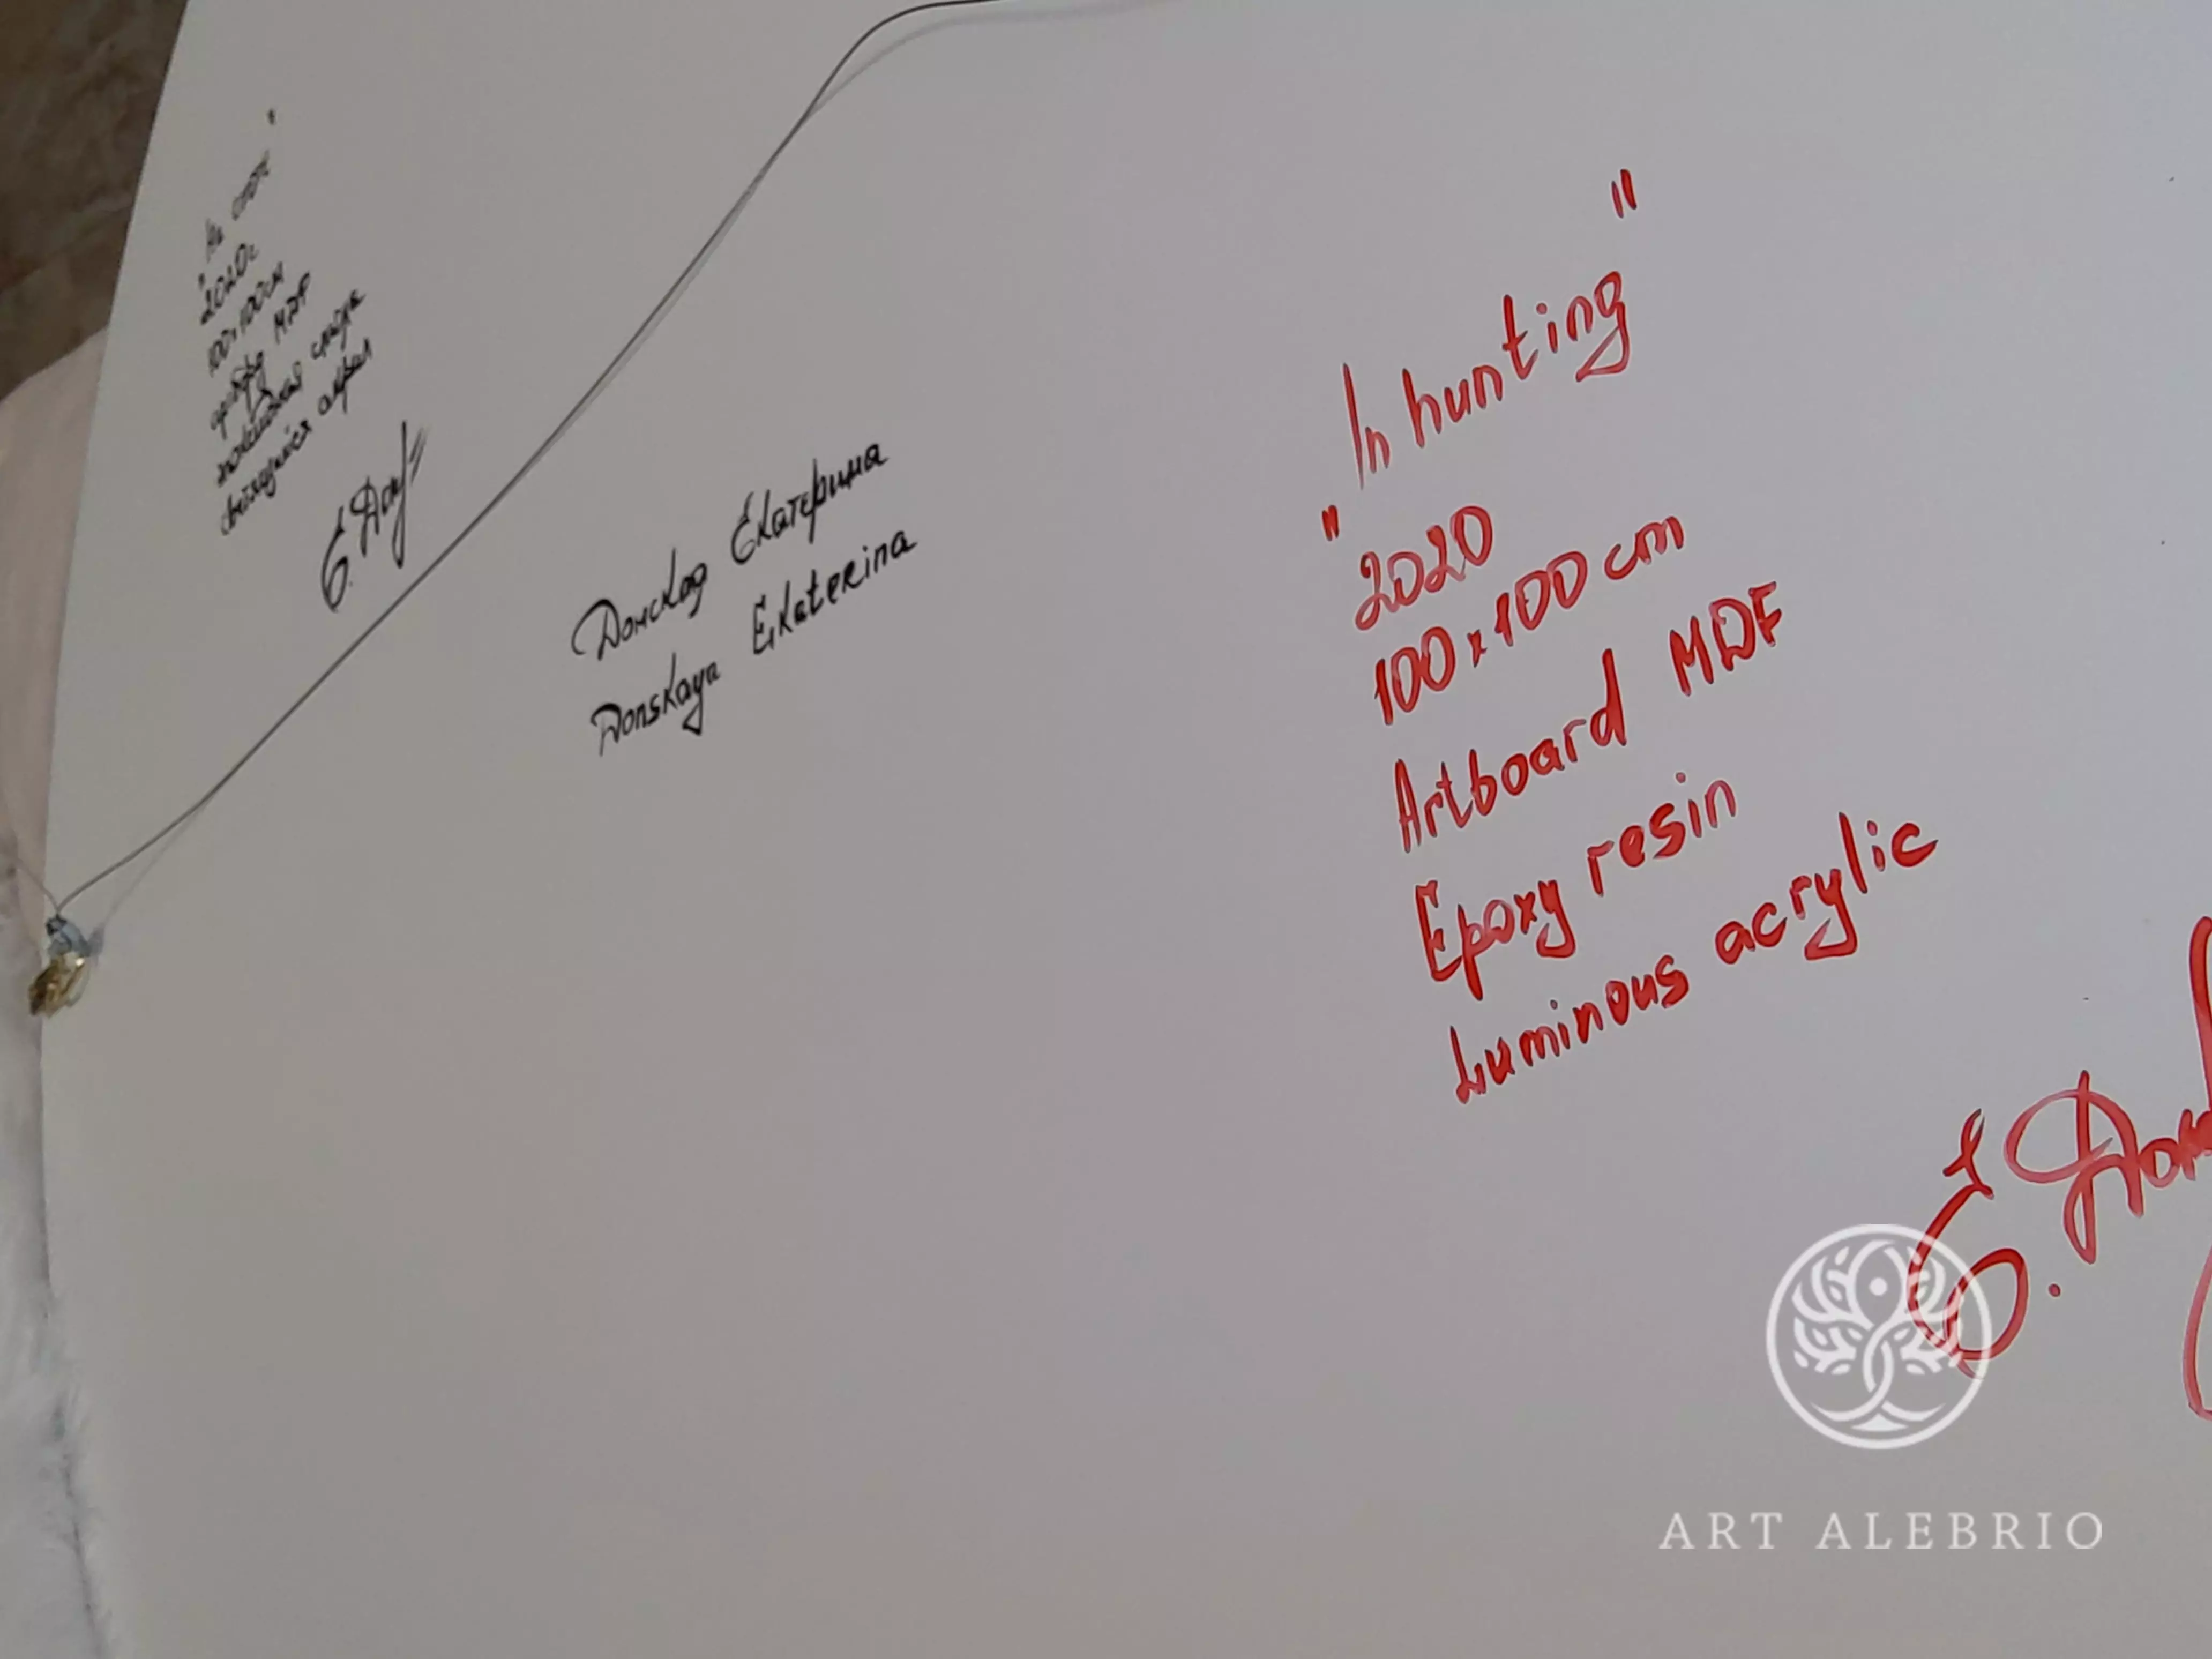 "На охоте"
2020г
100х100см
артборд MDF
эпоксидная смола
светящийся акрил
Донская Екатерина
Donskaya Ekaterina
"In hunting"
2020
100x100 cm
Artboard MDF
Epoxy resin
Luminous acrylic
ART ALEBRIO